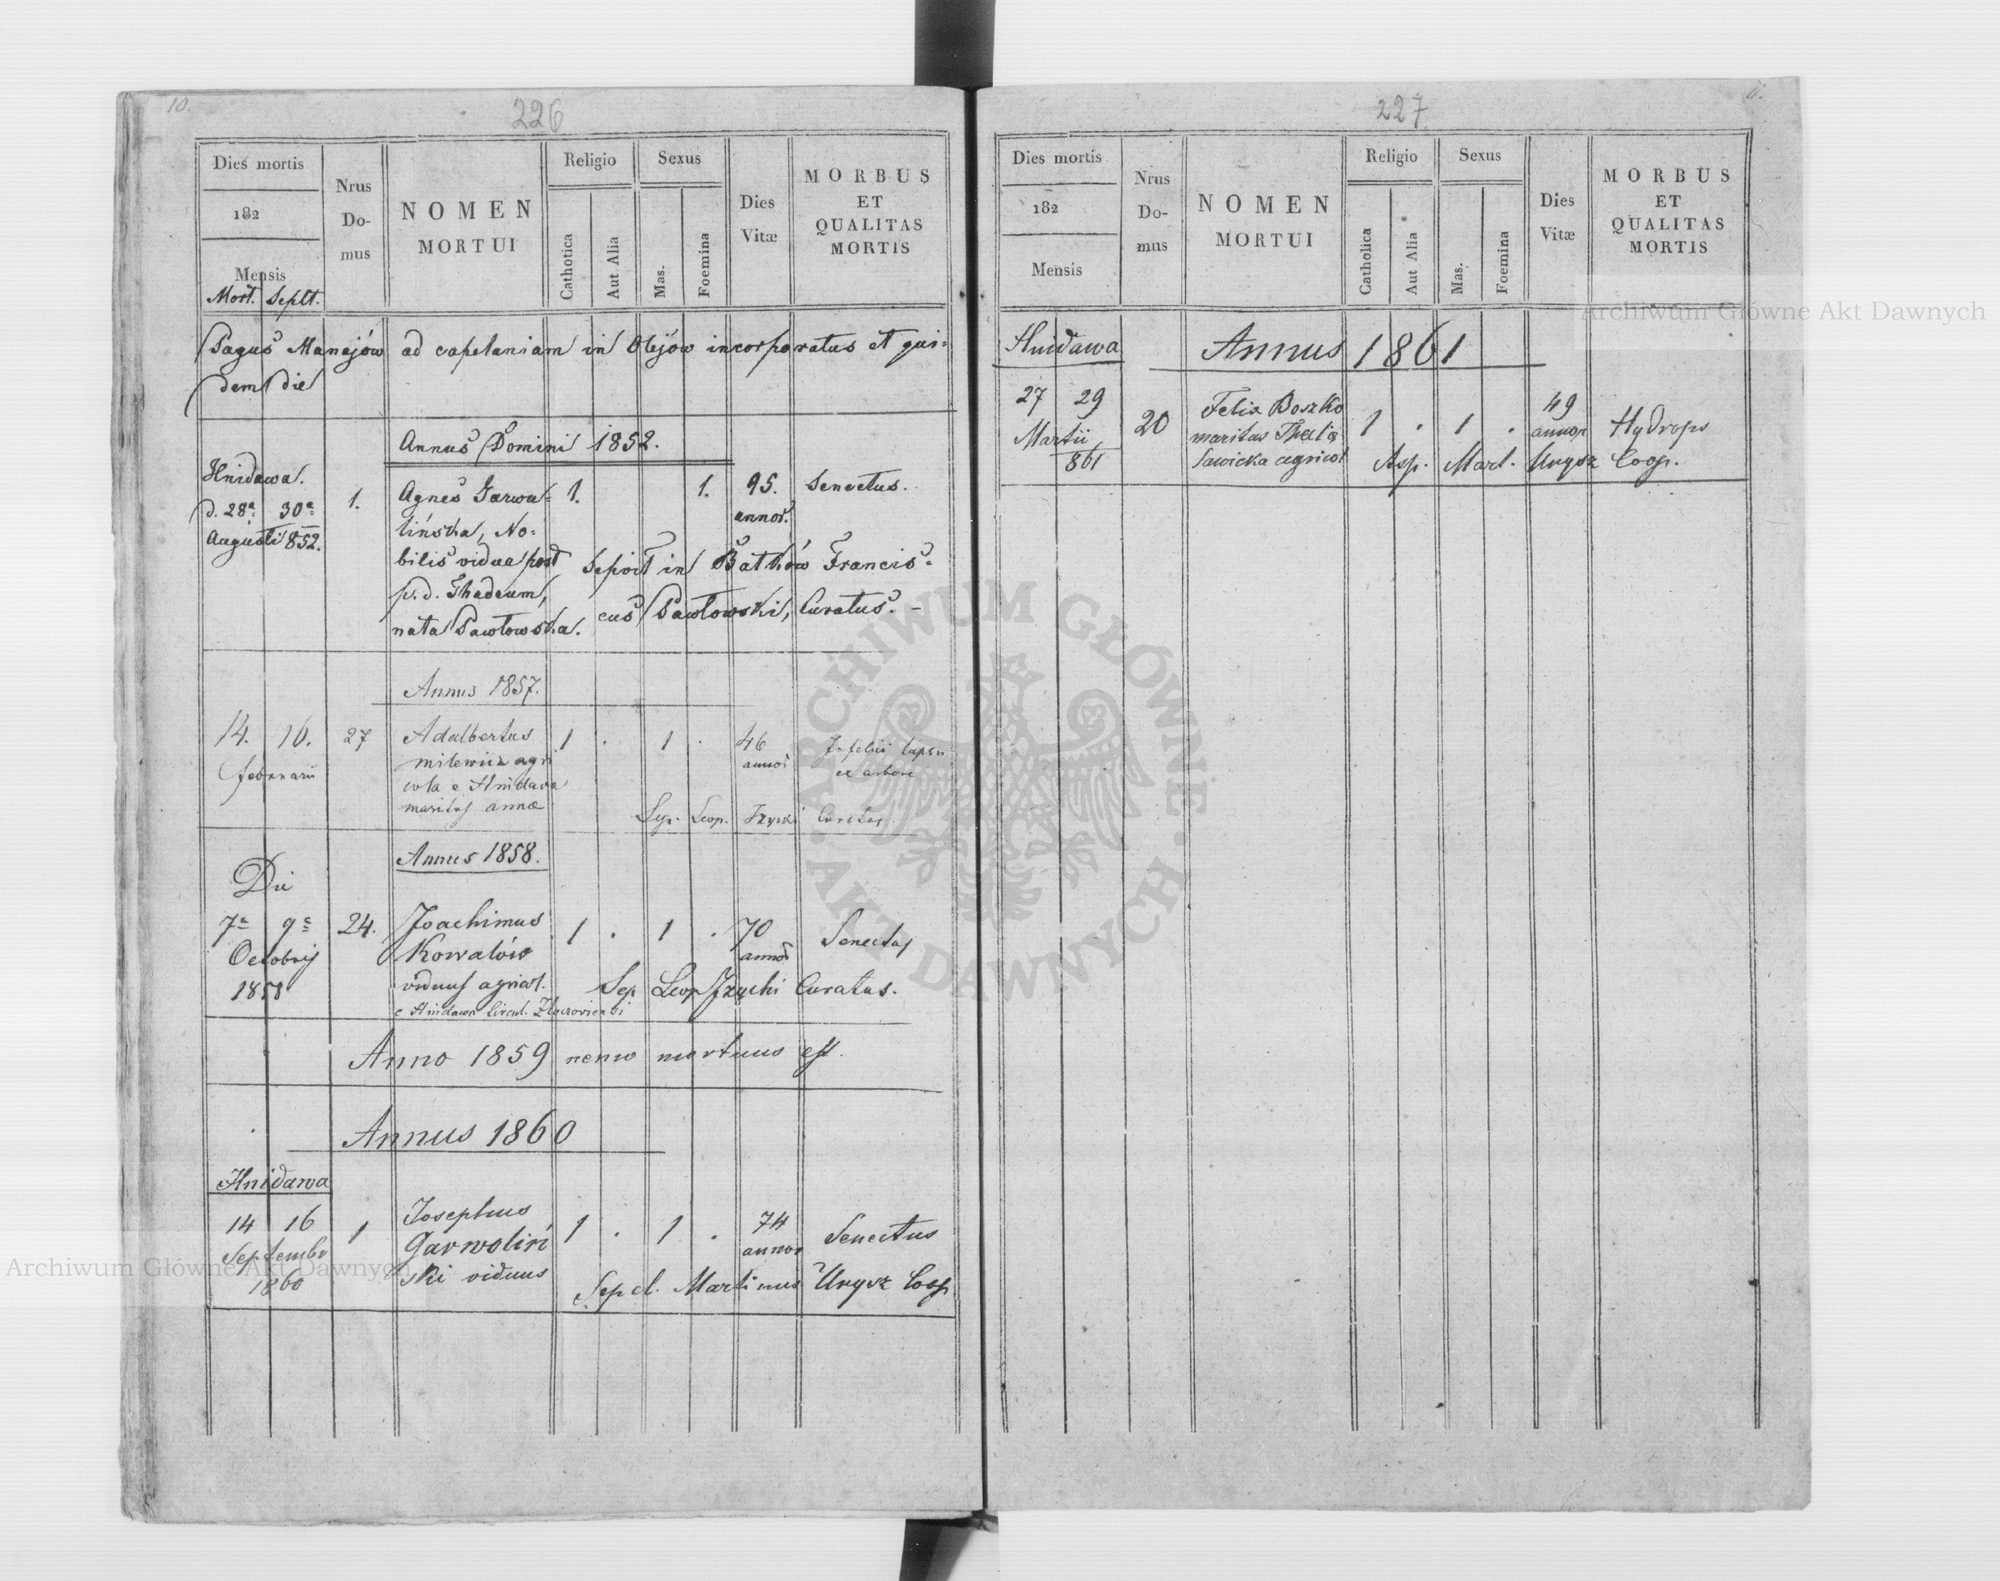 10.
226
Dies mortis
182
Mensis
Mort. Seplt.
Nrus Do- mus
NOMEN MORTUI
Religio
Cathotica
Aut Alia
Sexus
Mas.
Foemina
Dies Vitæ
MORBUS ET QUALITAS MORTIS
Pagus Manajów ad capelaniam in Olejów incorporatus et qui-
dem die
Annus Domini 1852.
Hnidawa.
d. 28a 30a 1. Agnes Garwo= 1. 1. 95. Senectus.
Augusti 852. lińska, No= annor.
bilis vidua post Sepivit in Batków Francis=
p.d. Thadeum, cus Pawłowski, Curatus. -
nata Pawłowska.
Annus 1857.
14. 16. 27 Adalbertus 1 . 1 . 46 Infelici lapsu
februarii milewicz agri annor ex arbore
cola e Hnidawa
maritus annæ Sep. Leop. Iżycki Curatus
Annus 1858.
Die
7a 9a 24. Joachimus 1 . 1 . 70 Senectus
Octobris Kowalów annor
1858 viduus agricol. Sep Leop Iżycki Curatus.
e Hnidawa Circul. Złoczoviensi
Anno 1859 nemo mortuus est.
Annus 1860
Hnidawa
14 16 1 Josephus 1 . 1 . 74 Senectus
Septembr Garwoliń annor
1860 ski viduus Sepel. Martinus Urysz Coop
227
Dies mortis
182
Mensis
Nrus Do- mus
NOMEN MORTUI
Religio
Catholica
Aut Alia
Sexus
Mas.
Foemina
Dies Vitæ
MORBUS ET QUALITAS MORTIS
Hnidawa Annus 1861
27 29 20 Felix Boszko 1 . 1 . 49 Hydrops
Martii maritus Theclæ annor
861 Sawicka agricol Asp. Mart. Urysz Coop.
Archiwum Główne Akt Dawnych
Archiwum Główne Akt Dawnych
ARCHIWUM GŁÓWNE AKT DAWNYCH